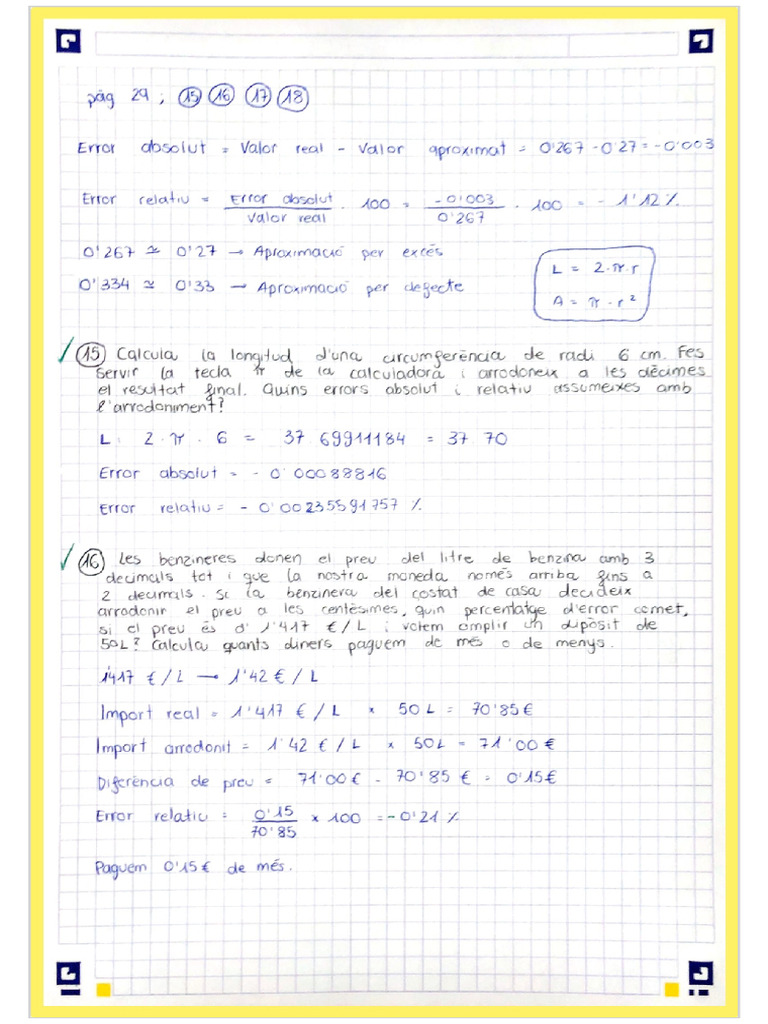 pàg 29 ; 15 16 17 18
Error absolut = Valor real - Valor aproximat = 0'267 - 0'27 = - 0'003
Error relatiu = Error absolut / Valor real · 100 = - 0'003 / 0'267 · 100 = - 1'12 %
0'267 ≅ 0'27 → Aproximació per excés
0'334 ≅ 0'33 → Aproximació per defecte
L = 2·π·r
A = π·r²
15 Calcula la longitud d'una circumferència de radi 6 cm. Fes
servir la tecla π de la calculadora i arrodoneix a les dècimes
el resultat final. Quins errors absolut i relatiu assumeixes amb
l'arrodoniment?
L: 2·π·6 = 37'69911184 = 37'70
Error absolut = - 0'00088816
Error relatiu = - 0'00235591757 %
16 Les benzineres donen el preu del litre de benzina amb 3
decimals tot i que la nostra moneda només arriba fins a
2 decimals. Si la benzinera del costat de casa decideix
arrodonir el preu a les centèsimes, quin percentatge d'error comet,
si el preu és d' 1'417 €/L i volem omplir un dipòsit de
50L? Calcula quants diners paguem de més o de menys.
1'417 €/L → 1'42 €/L
Import real = 1'417 €/L × 50L = 70'85€
Import arrodonit = 1'42 €/L × 50L = 71'00€
Diferència de preu = 71'00€ - 70'85€ = 0'15€
Error relatiu = 0'15 / 70'85 × 100 = -0'21 %
Paguem 0'15€ de més.